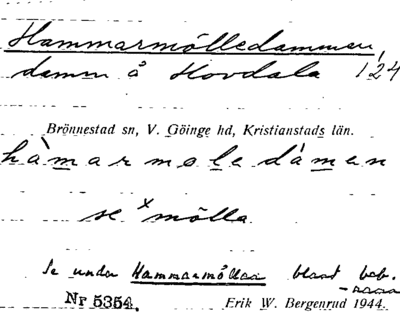 Hammarmölledammen,
damm å Hovdala 124
Brönnestad sn, V. Göinge hd, Kristianstads län.
hàmarmøledámen
se ˣmölla
Se under Hammarmöllan bland beb.
-namn
Nr 5354. Erik W. Bergenrud 1944.